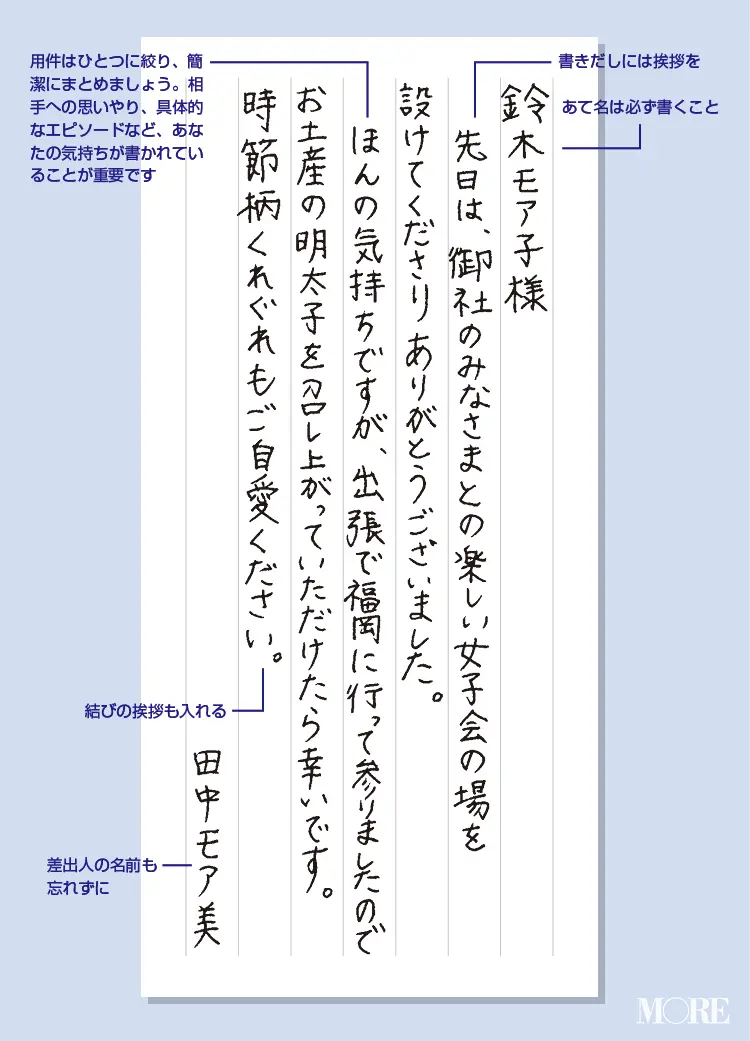 書きだしには挨拶を
あて名は必ず書くこと
用件はひとつに絞り、簡
潔にまとめましょう。相
手への思いやり、具体的
なエピソードなど、あな
たの気持ちが書かれてい
ることが重要です
鈴木モア子様
先日は、御社のみなさまとの楽しい女子会の場を
設けてくださりありがとうございました。
ほんの気持ちですが、出張で福岡に行って参りましたので
お土産の明太子を召し上がっていただけたら幸いです。
時節柄くれぐれもご自愛ください。
結びの挨拶も入れる
田中モア美
差出人の名前も
忘れずに
MORE